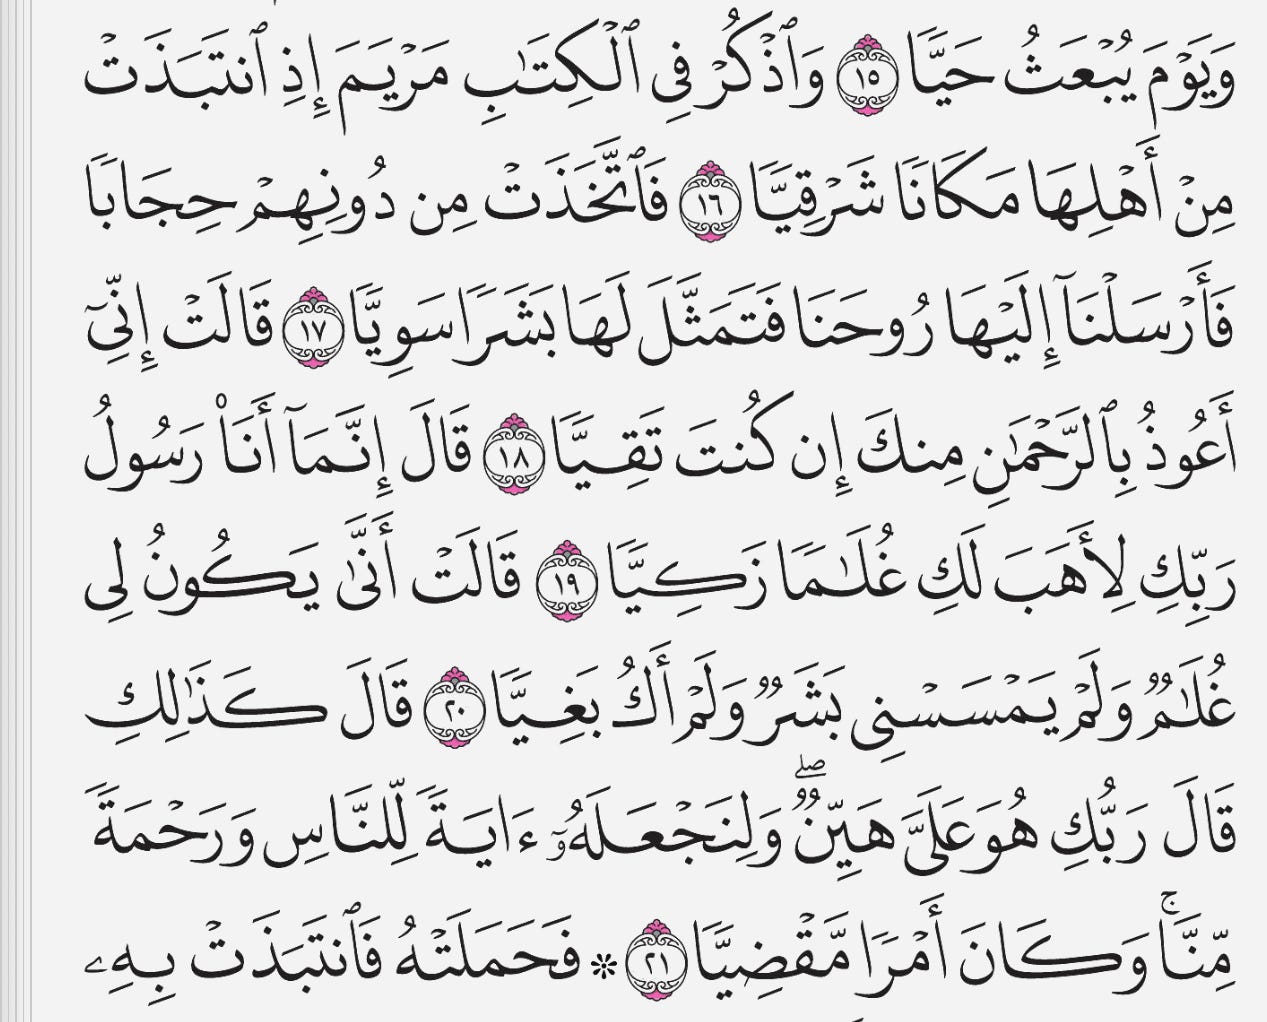 وَيَوْمَ يُبْعَثُ حَيًّا ١٥ وَٱذْكُرْ فِى ٱلْكِتَٰبِ مَرْيَمَ إِذِ ٱنتَبَذَتْ
مِنْ أَهْلِهَا مَكَانًا شَرْقِيًّا ١٦ فَٱتَّخَذَتْ مِن دُونِهِمْ حِجَابًا
فَأَرْسَلْنَآ إِلَيْهَا رُوحَنَا فَتَمَثَّلَ لَهَا بَشَرًا سَوِيًّا ١٧ قَالَتْ إِنِّىٓ
أَعُوذُ بِٱلرَّحْمَٰنِ مِنكَ إِن كُنتَ تَقِيًّا ١٨ قَالَ إِنَّمَآ أَنَا۠ رَسُولُ
رَبِّكِ لِأَهَبَ لَكِ غُلَٰمًا زَكِيًّا ١٩ قَالَتْ أَنَّىٰ يَكُونُ لِى
غُلَٰمٌ وَلَمْ يَمْسَسْنِى بَشَرٌ وَلَمْ أَكُ بَغِيًّا ٢٠ قَالَ كَذَٰلِكِ
قَالَ رَبُّكِ هُوَ عَلَىَّ هَيِّنٌ ۖ وَلِنَجْعَلَهُۥٓ ءَايَةً لِّلنَّاسِ وَرَحْمَةً
مِّنَّا ۚ وَكَانَ أَمْرًا مَّقْضِيًّا ٢١ ۞ فَحَمَلَتْهُ فَٱنتَبَذَتْ بِهِۦ